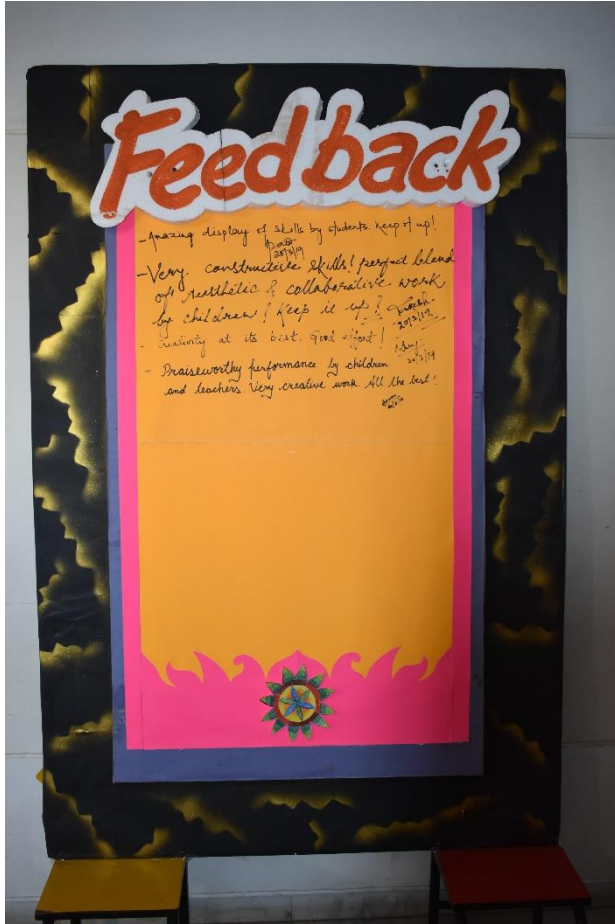 Feedback
- Amazing display of skills by students. Keep it up!
20/3/19
- Very constructive skills! perfect blend
of aesthetic & collaborative work
by children! Keep it up!
20/3/19
- Creativity at its best. Good effort!
20/3/19
- Praiseworthy performance by children
and teachers. Very creative work. All the best!